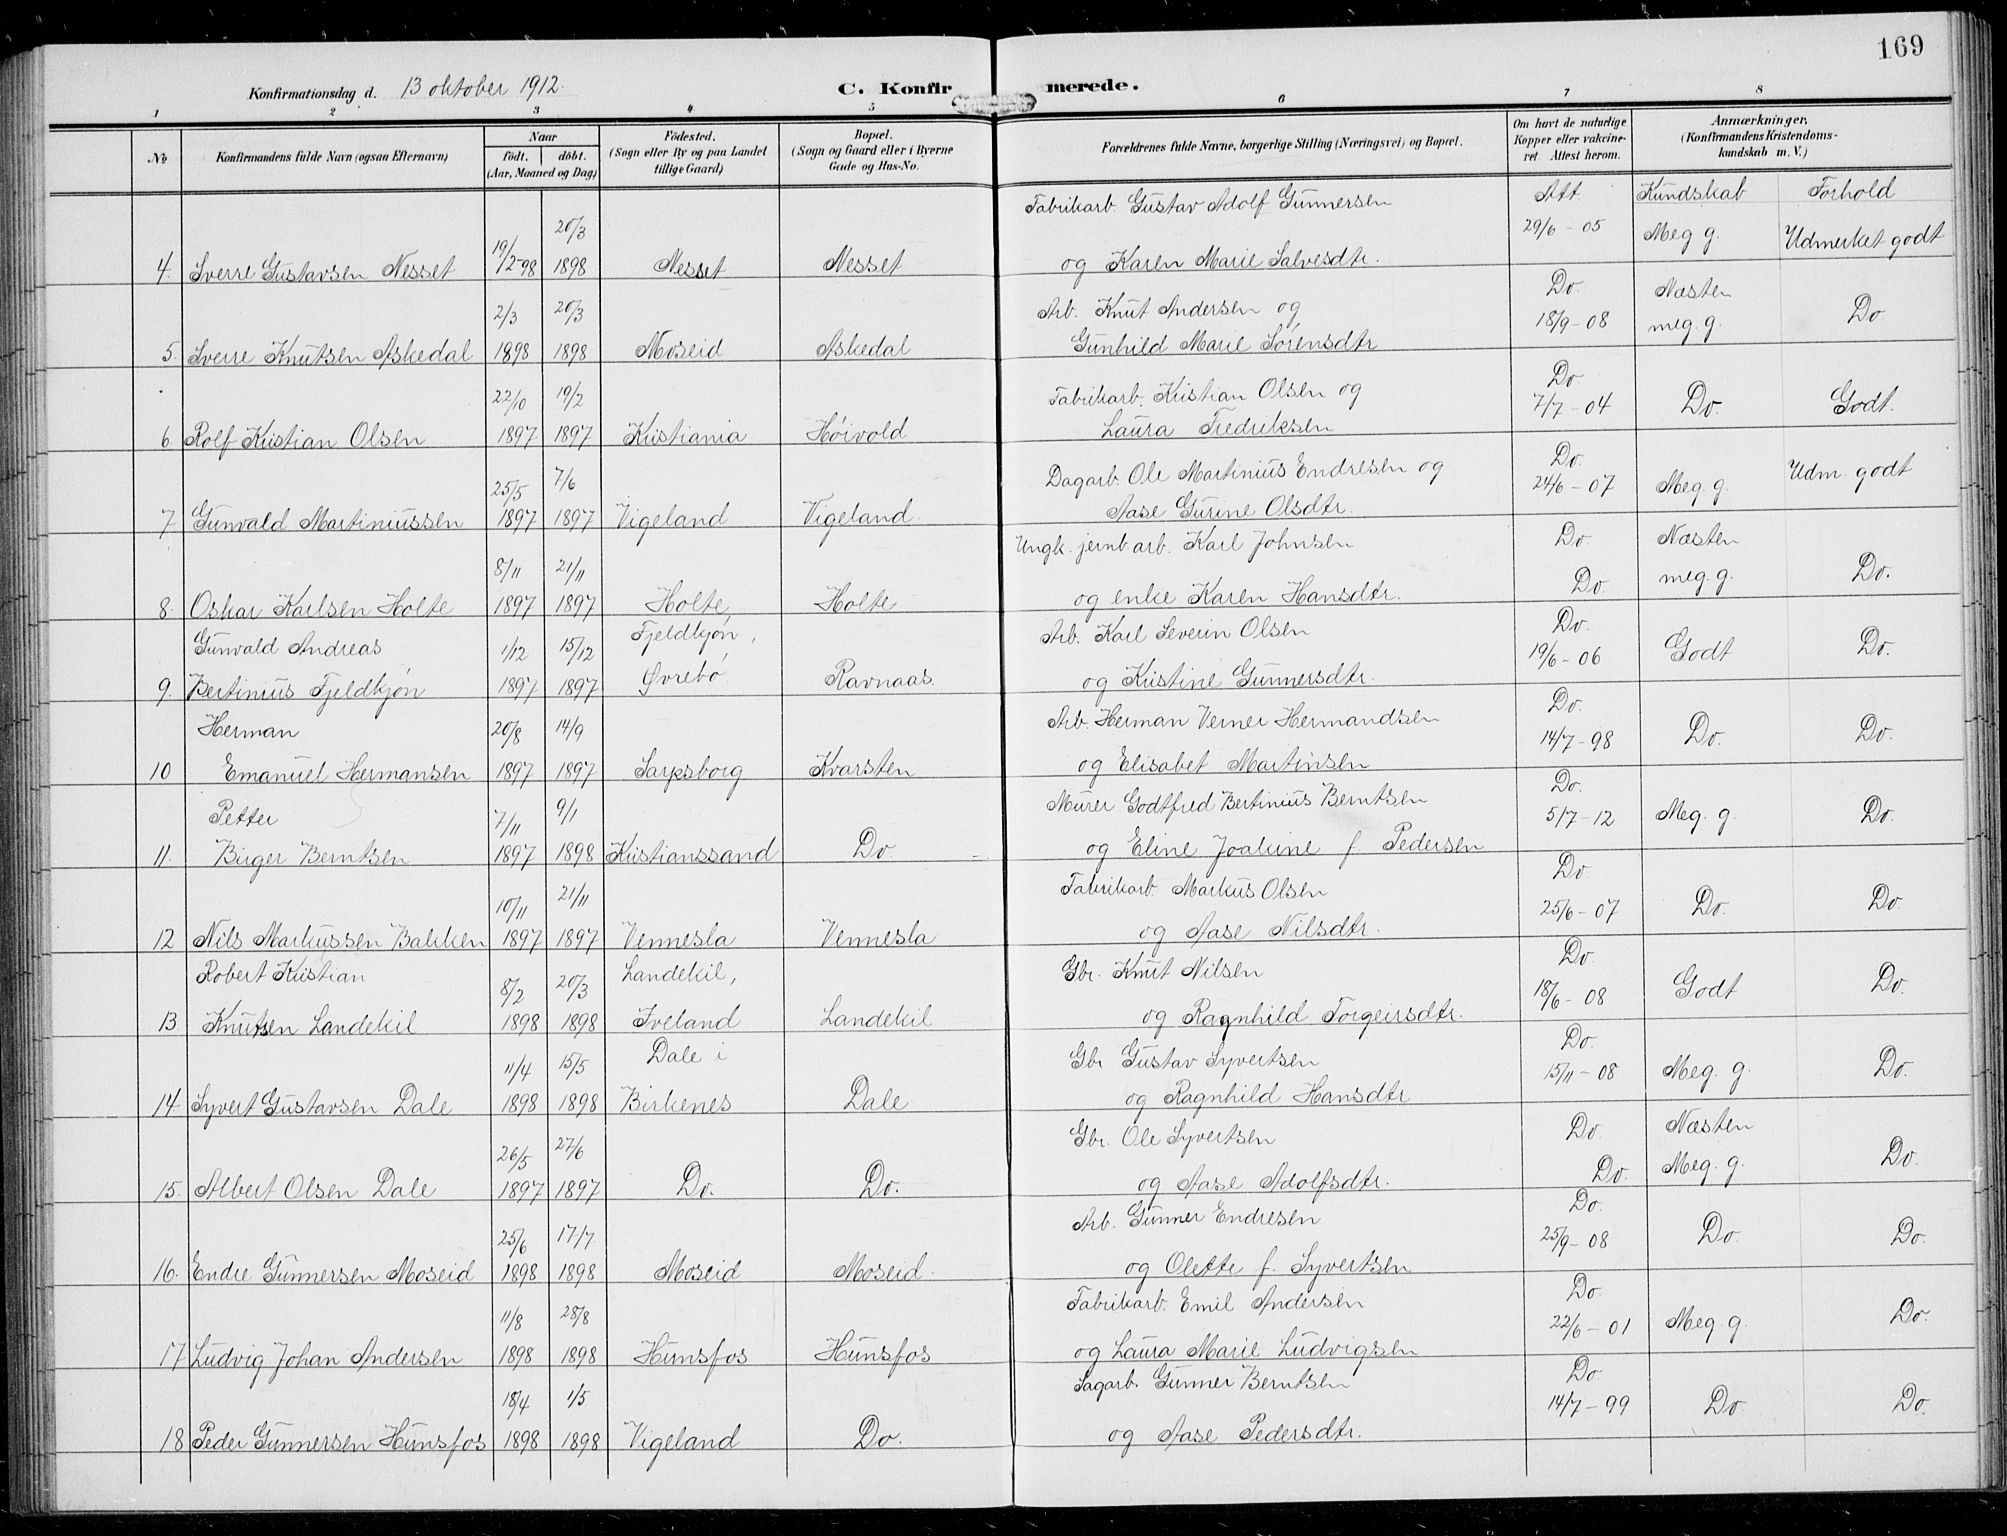 169
Konfirmationsdag d. 13 oktober 1912.
C. Konfirmerede.
1 2 3 4 5 6 7 8
No
Konfirmandens fulde Navn (ogsaa Efternavn)
Naar
født. døbt.
(Aar, Maaned og Dag)
Fødested.
(Sogn eller By og paa Landet
tillige Gaard)
Bopæl.
(Sogn og Gaard eller i Byerne
Gade og Hus-No.
Forældrenes fulde Navne, borgerlige Stilling (Næringsvei) og Bopæl.
Om havt de naturlige
Kopper eller vakcine-
ret Attest herom.
Anmærkninger.
(Konfirmandens Kristendoms-
kundskab m. V.)
Fabrikarb. Gustav Adolf Gunnersen Att. Kundskab Forhold
20/3 29/6 - 05 Meg g. Udmerket godt
4. Sverre Gustavsen Nesset 19/2-98 1898 Nesset Nesset og Karen Marie Salvesdtr.
2/3 20/3 Arb. Knut Andersen og Do. Næsten
5. Sverre Knutsen Askedal 1898 1898 Moseid Askedal Gunhild Marie Sørensdtr 18/9-08 meg. g. Do
22/10 19/2 Fabrikarb. Kristian Olsen og Do
6. Rolf Kristian Olsen 1897 1897 Kristiania Høivold Laura Fredriksen 7/7-04 Do. Godt.
25/5 7/6 Dagarb. Ole Martinius Endresen og Do. Udm. godt
7 Gunvald Martiniussen 1897 1897 Vigeland Vigeland. Aase Gurine Olsdtr. 24/6-07 Meg. g.
8/11 21/11 Ungk. jernb arb. Karl Johnsen Do. Næsten
8. Oskar Karlsen Holte 1897 1897 Holte Holte og enke Karen Hansdtr. Do. meg. g. Do.
Gunvald Andreas 1/12 15/12 Fjeldkjøn, Arb. Karl Severin Olsen Do.
9. Bertinius Fjeldkjøn 1897 1897 Øvrebø Ravnaas. og Kristine Gunnersdtr. 19/6-06 Godt Do.
Herman 20/8 14/9 Arb. Herman Verner Hermandsen Do.
10 Emanuel Hermansen 1897 1897 Sarpsborg Kvarsten og Elisabet Martinsen 14/7-98 Do. Do.
Petter 7/11 9/1 Murer Godtfred Bertinius Berntsen Do.
11. Birger Berntsen 1897 1898 Kristianssand Do. og Eline Joakine f. Pedersen 5/7-12 Meg. g. Do.
10/11 21/11 Fabrikarb. Markus Olsen Do.
12 Nils Markussen Bakken 1897 1897 Vennesla Vennesla og Aase Nilsdtr. 25/6-07 Do. Do.
Robert Kristian 8/2 20/3 Landekil, Gbr. Knut Nilsen Do.
13. Knutsen Landekil 1898 1898 Iveland Landekil og Ragnhild Torgeirsdtr. 18/6-08 Godt Do.
11/4 15/5 Dale i Gbr Gustav Syvertsen Do.
14 Syvert Gustavsen Dale 1898 1898 Birkenes Dale og Ragnhild Hansdtr 15/11-08 Meg. g. Do.
26/5 27/6 Gbr. Ole Syvertsen Do. Næsten
15. Albert Olsen Dale 1897 1897 Do. Do. og Aase Adolfsdtr. Do. Meg. g. Do.
25/6 17/7 Arb. Gunner Endresen Do.
16. Endre Gunnersen Moseid 1898 1898 Moseid Moseid. og Olette f. Syvertsen 25/9-08 Do. Do.
11/8 28/8 Fabrikarb. Emil Andersen Do.
17 Ludvig Johan Andersen 1898 1898 Hunsfos Hunsfos og Laura Marie Ludvigsen 22/6-01 Meg. g. Do.
18/4 1/5 Sagarb. Gunner Berntsen Do.
18 Peder Gunnersen Hunsfos 1898 1898 Vigeland Do. og Aase Pedersdtr. 14/7-99 Do. Do.